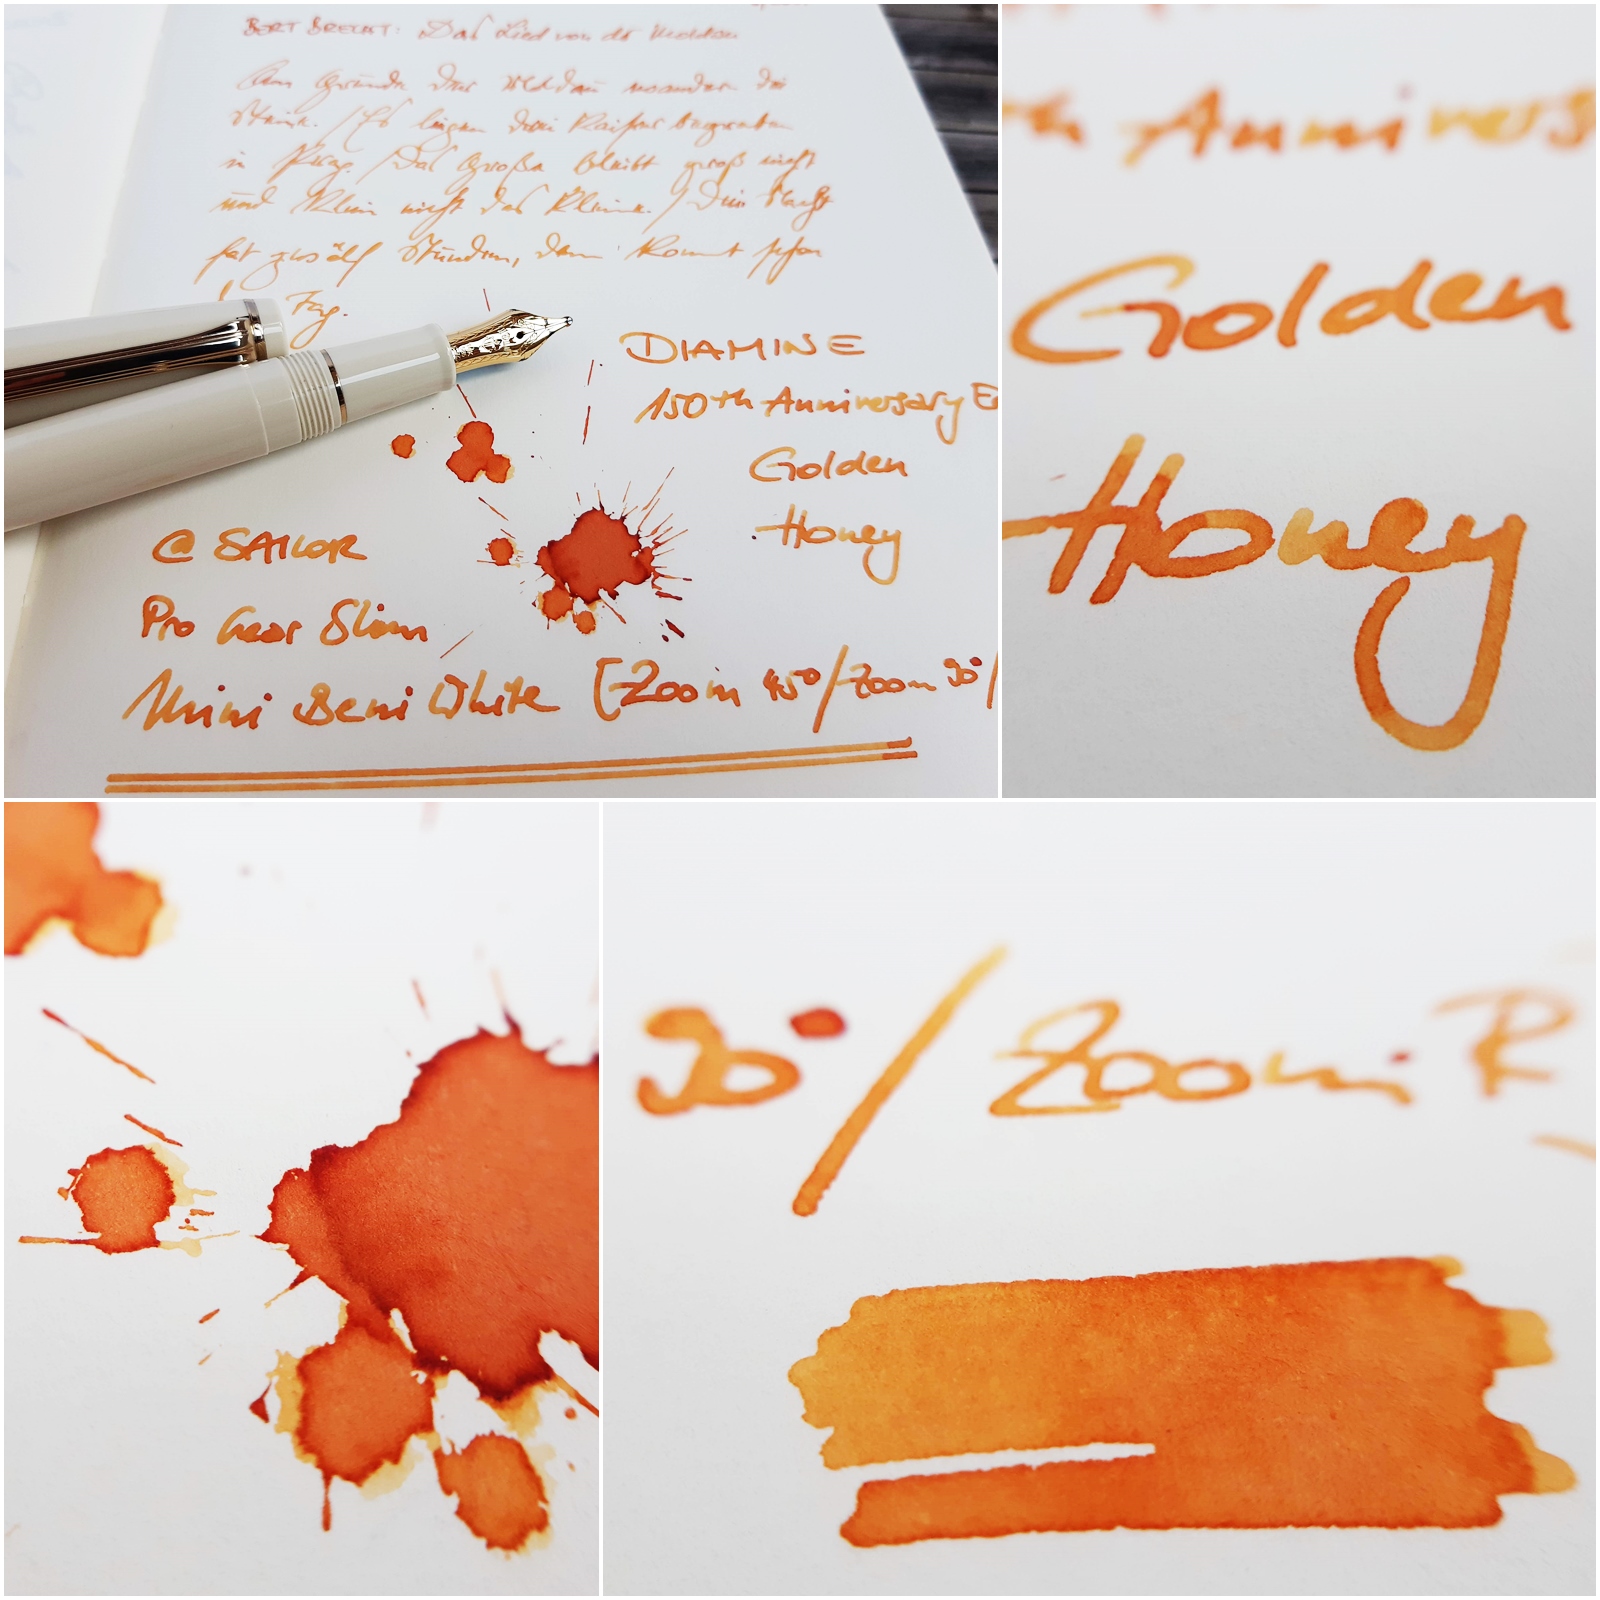 BERT BRECHT: Das Lied von der Moldau
Am Grunde der Moldau wandern die
Steine. / Es liegen drei Kaiser begraben
in Prag. / Das Große bleibt groß nicht
und klein nicht das Kleine. / Die Nacht
hat zwölf Stunden, dann kommt schon
Tag.
DIAMINE
150th Anniversary E
Golden
Honey
@ SAILOR
Pro Gear Slim
Mini Beni White [Zoom 45°/Zoom 90°/
th Annivers
Golden
Honey
90°/Zoom R